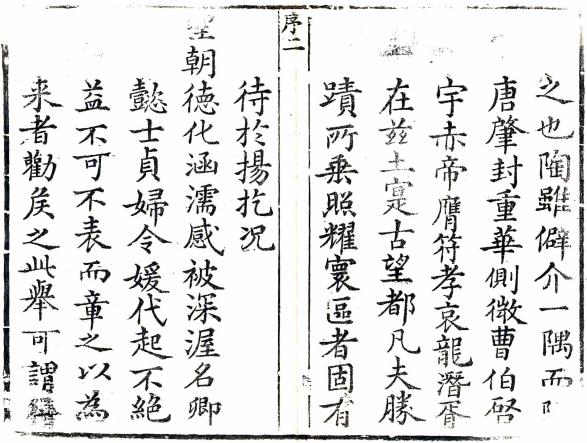 之也陶雖僻介一隅而
唐肇封重華側微曹伯啓
宇赤帝膺符孝哀龍潛胥
在茲土寔古望都凡夫勝
蹟所乗照耀寰區者固有
序二
待於揚扢况
聖朝德化涵濡感被深渥名卿
懿士貞婦令媛代起不絶
益不可不表而章之以為
来者勸矣之此舉可謂